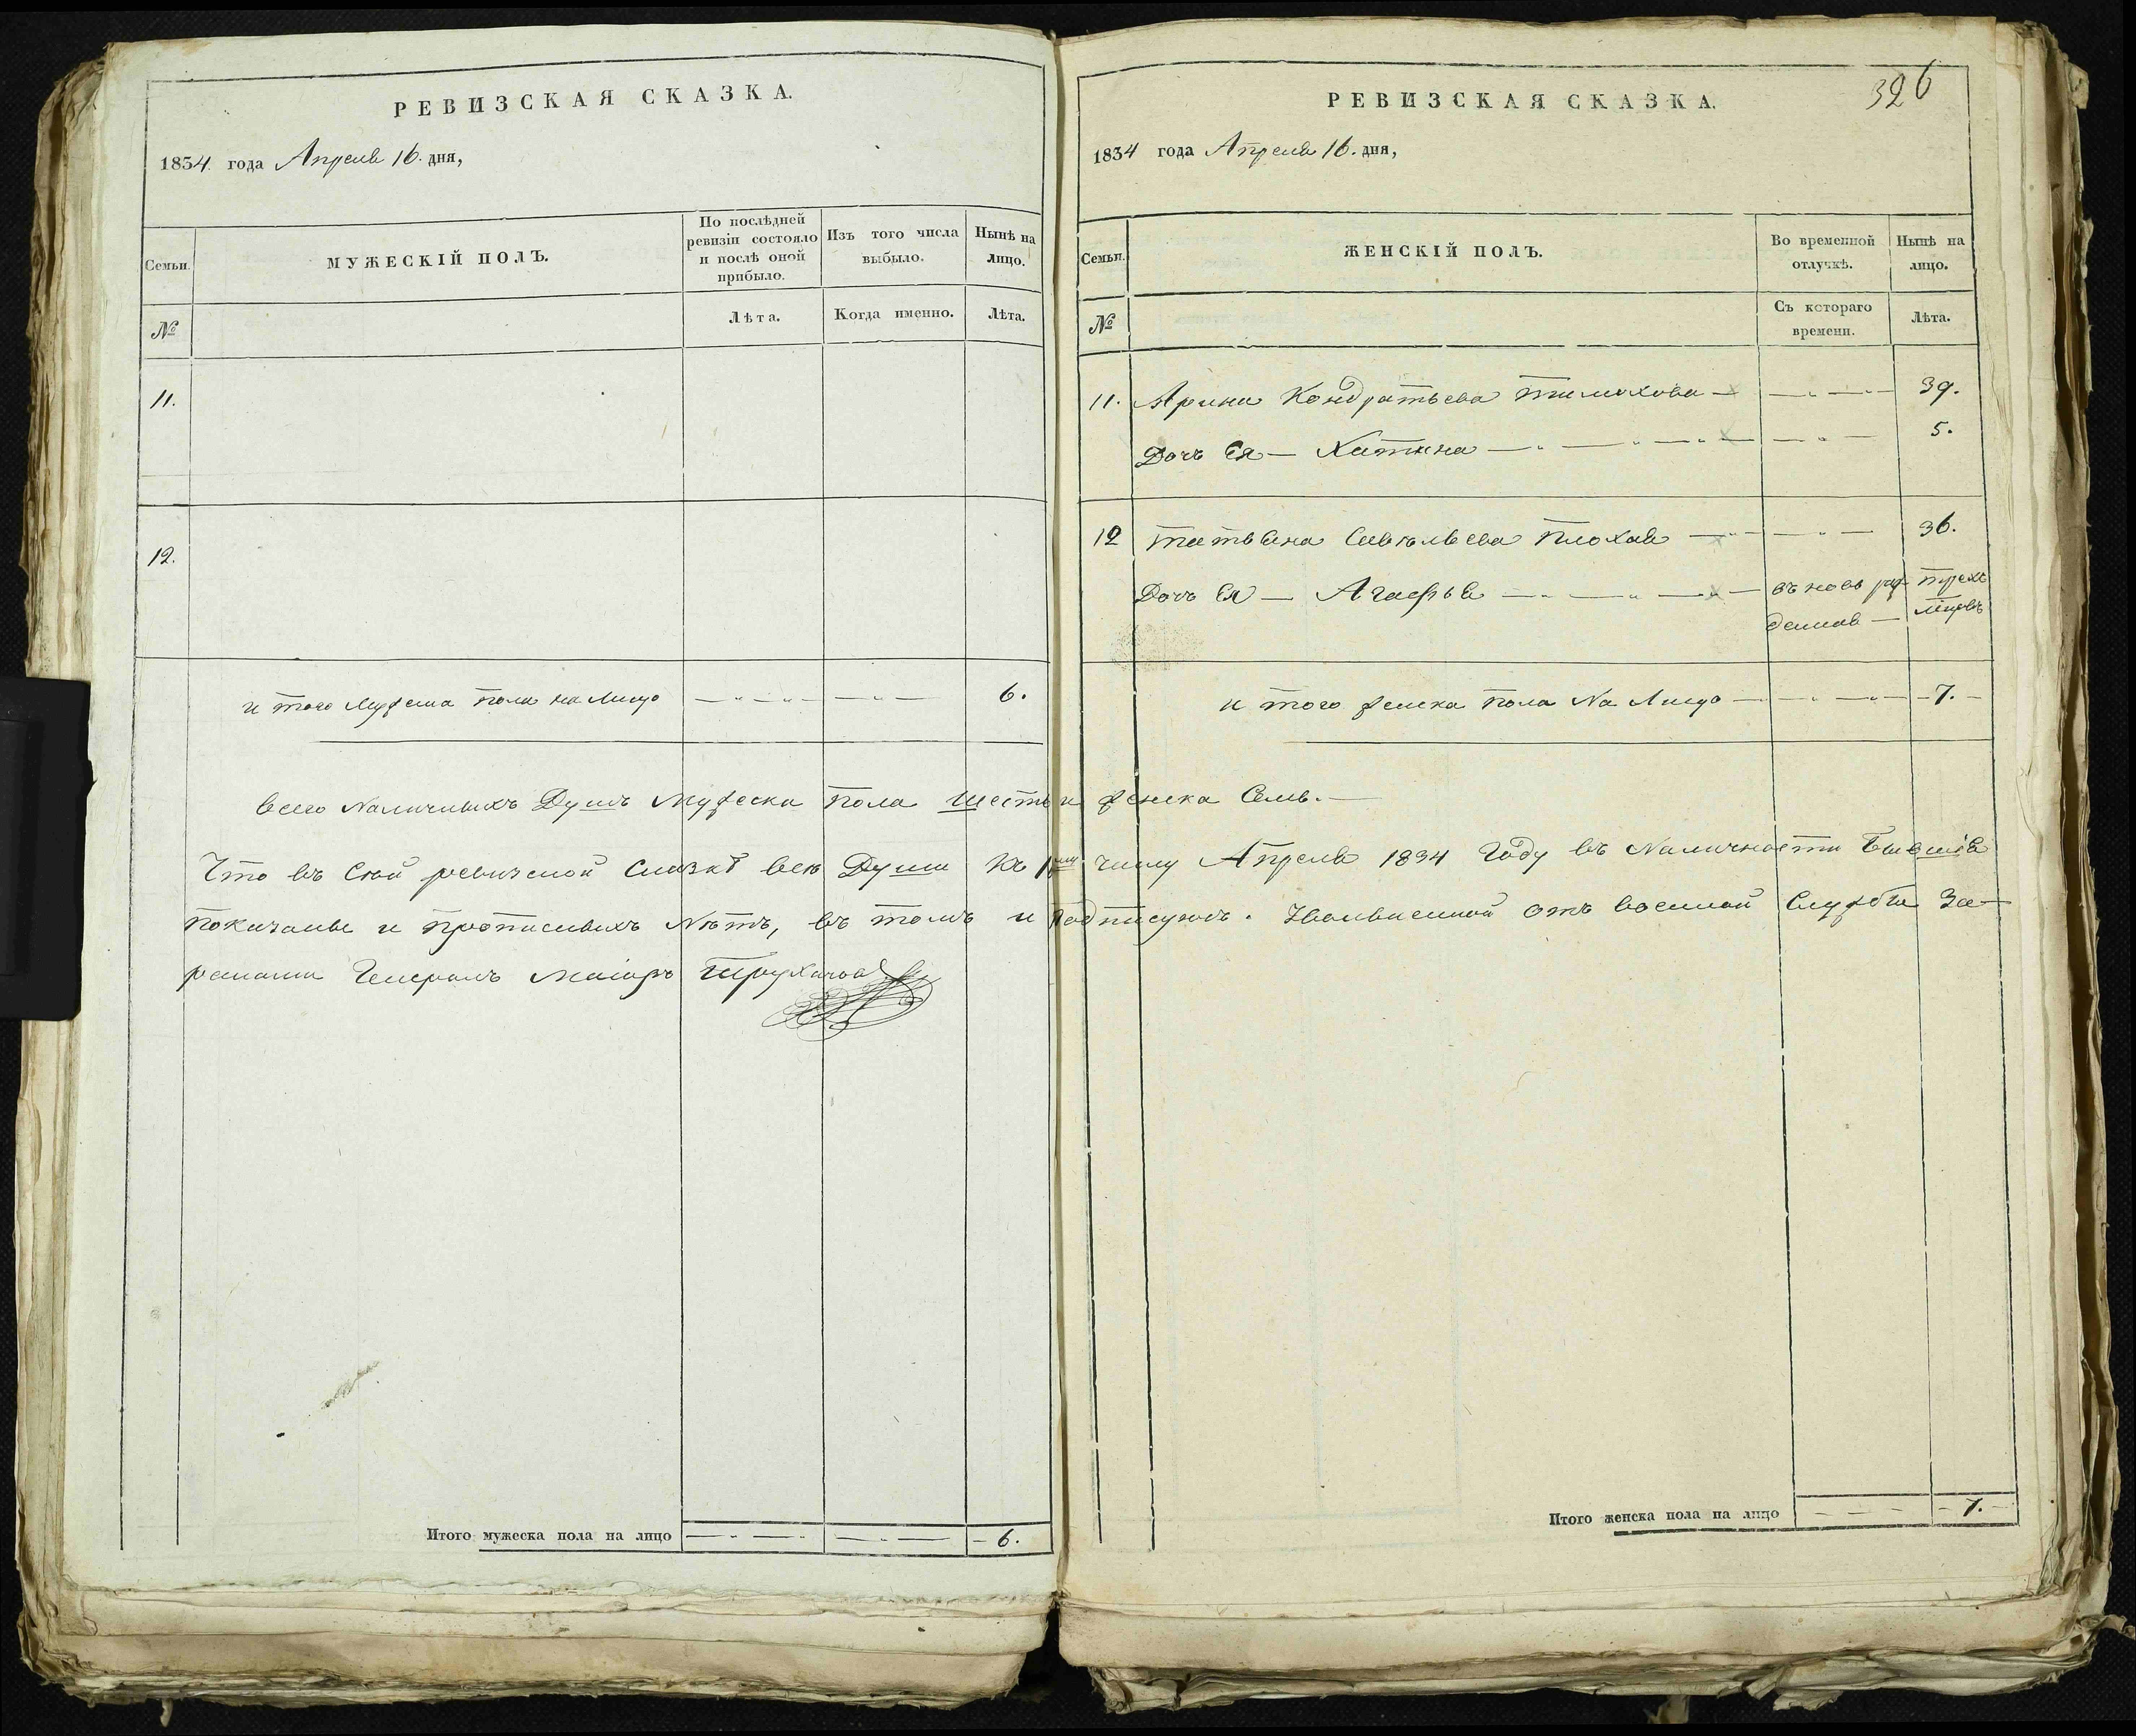 РЕВИЗСКАЯ СКАЗКА.
1834 года Апреля 16. дня,
Семьи.
МУЖЕСКІЙ ПОЛЪ.
По послѣдней ревизіи состояло и послѣ оной прибыло.
Изъ того числа выбыло.
Нынѣ на лицо.
№
Лѣта.
Когда именно.
Лѣта.
11.
12.
и того Мужеска пола на Лицо 6.
Итого мужеска пола на лицо 6.
326
РЕВИЗСКАЯ СКАЗКА.
1834 года Апреля 16. дня,
Семьи.
ЖЕНСКІЙ ПОЛЪ.
Во временной отлучкѣ.
Нынѣ на лицо.
№
Съ котораго времени.
Лѣта.
11. Арина Кондратьева 39.
Дочь Ея 5.
12 Татьяна Савельева Плохая 36.
Дочь Ея Агафья въ новь рож трехъ
денная
и того женска пола На Лицо 7.
всего Наличныхъ Душъ Мужеска пола шесть и женска Семь.
Что въ сей ревизской сказкѣ все Души къ 1му числу Апреля 1834 Году въ Наличности Бывшія
показаны и прописныхъ Нѣтъ, въ томъ и подписуюсь. Уволенной отъ военной Службы За
ранами Генералъ Маіоръ
Итого женска пола на лицо 7.